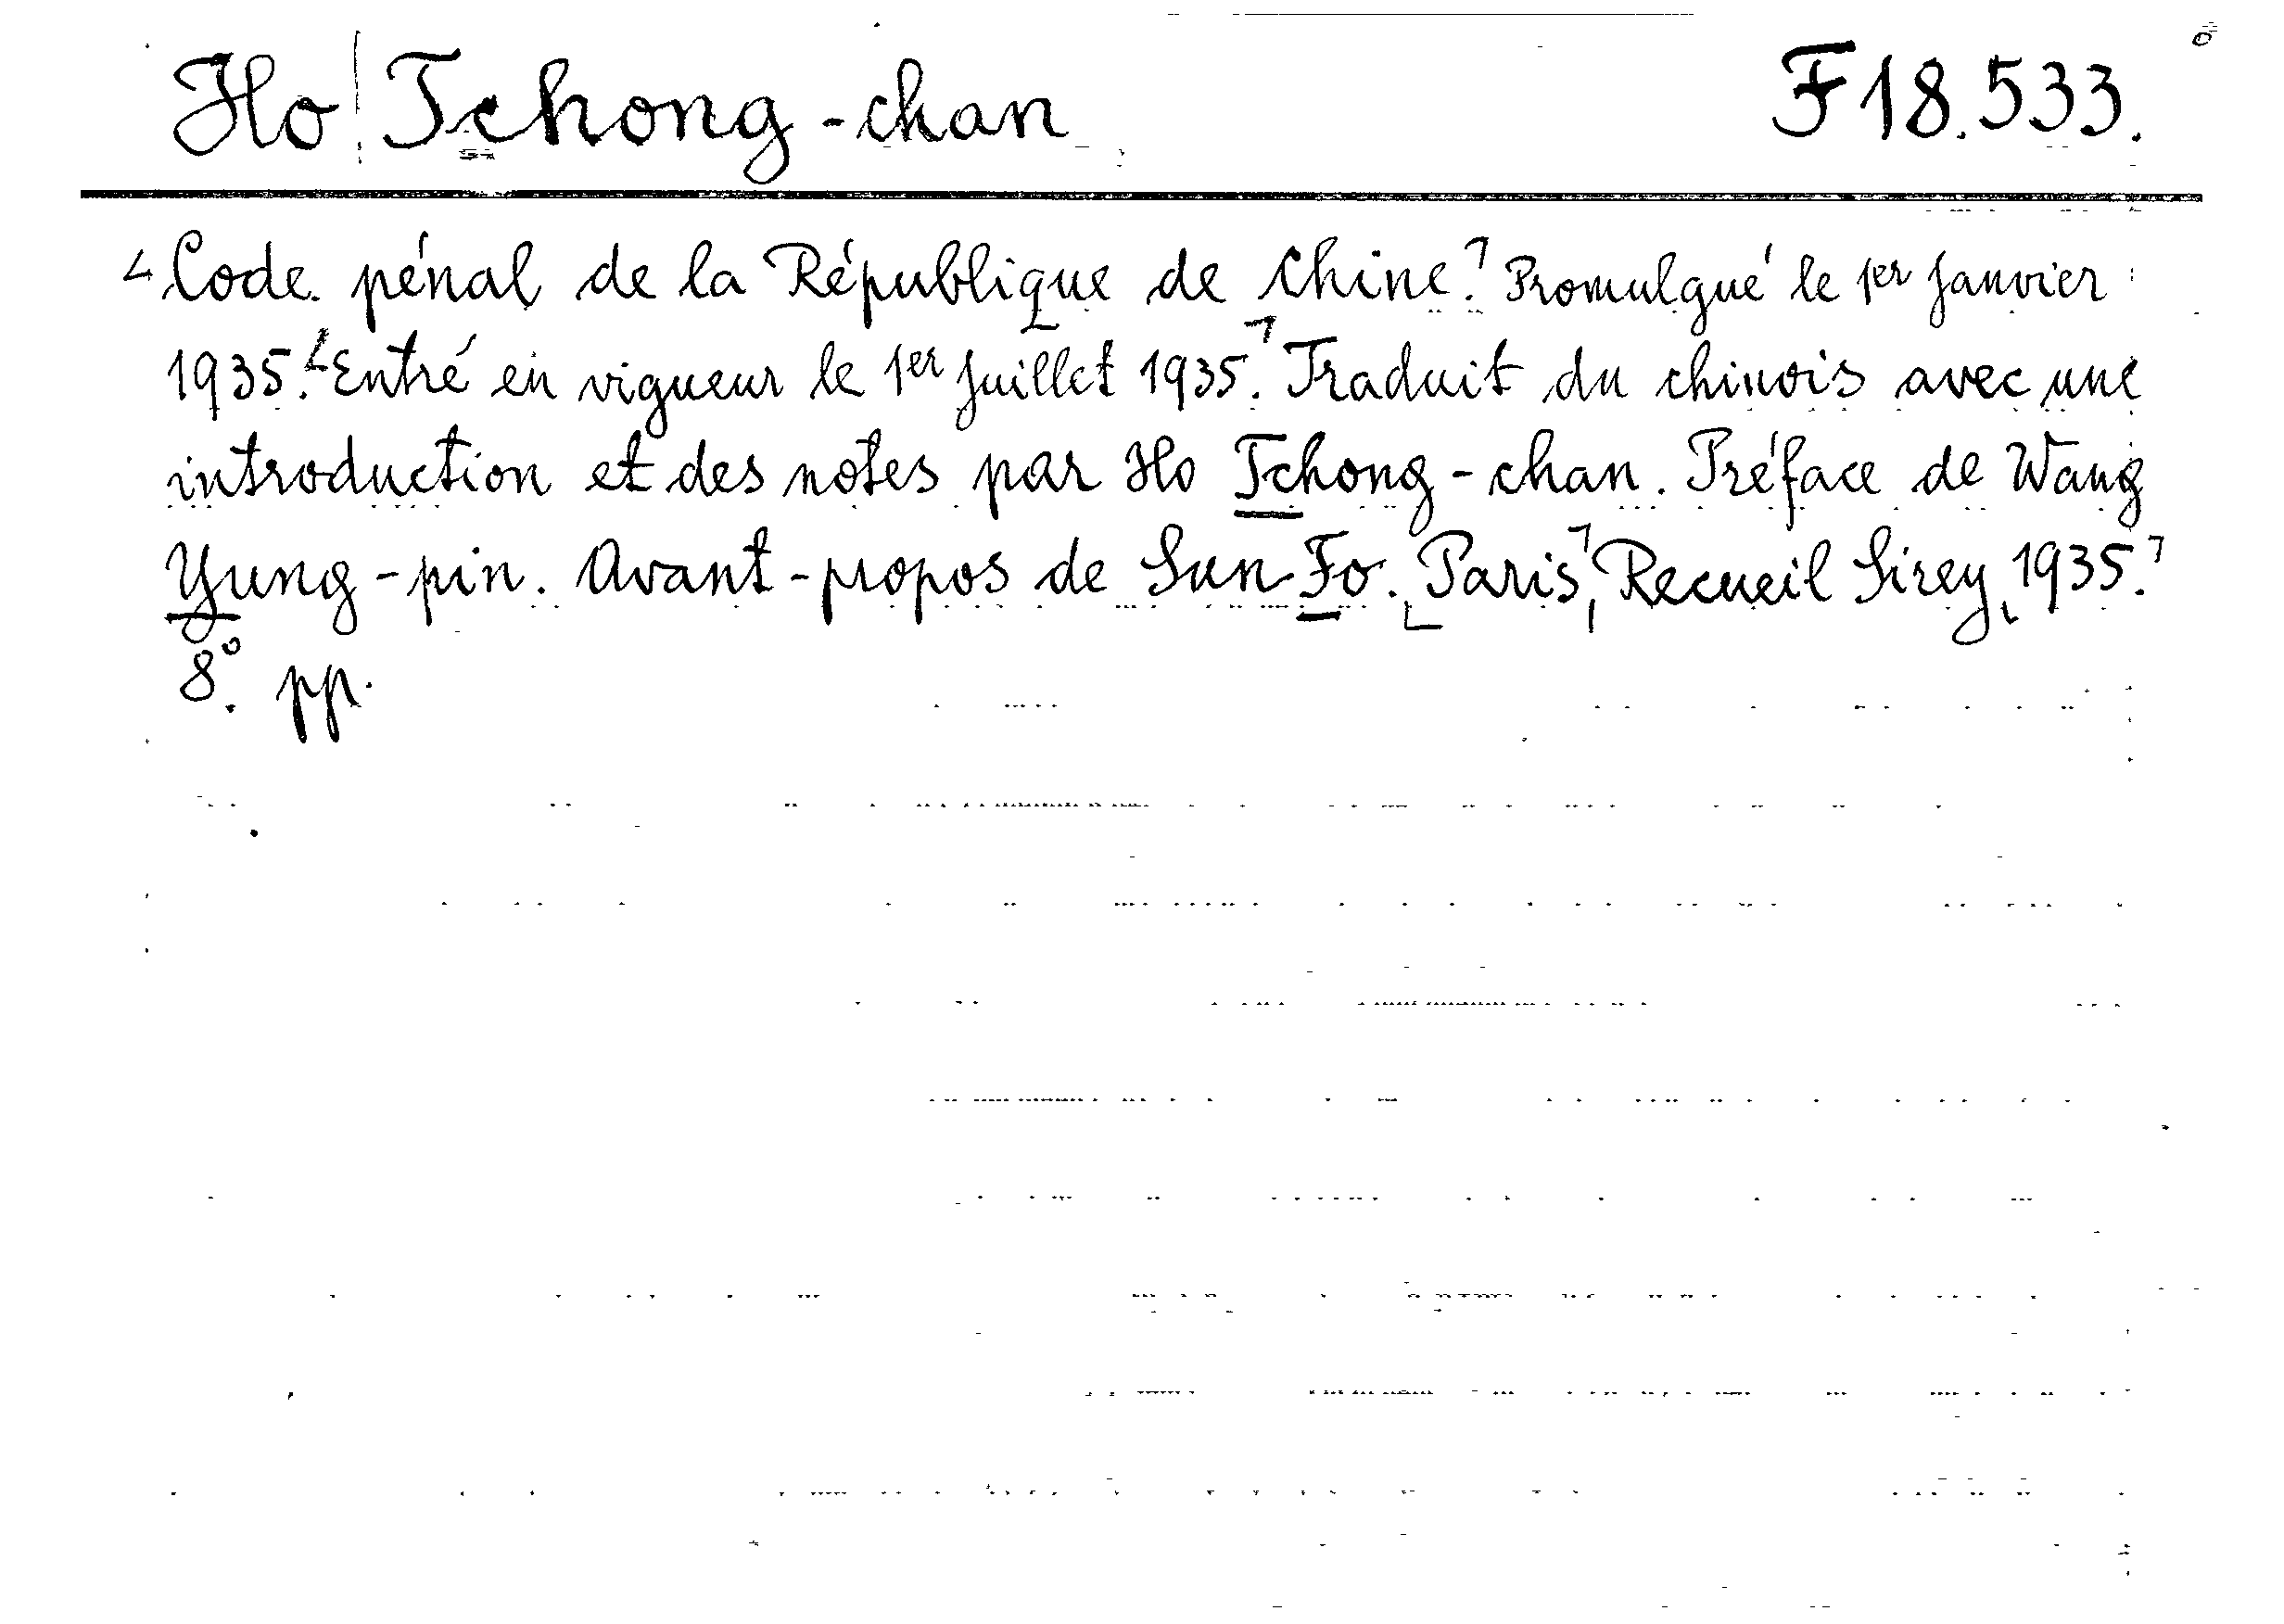 Ho Tchong-chan F 18.533.
Code pénal de la République de Chine. Promulgué le 1er Janvier
1935. Entré en vigueur le 1er Juillet 1935. Traduit du chinois avec une
introduction et des notes par Ho Tchong-chan. Préface de Wang
Yung-pin. Avant-propos de Sun Fo. Paris, Recueil Sirey, 1935.
8°. pp.